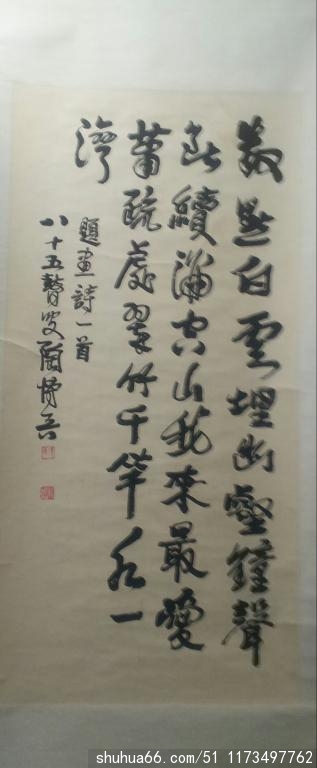 數點白雲埋幽壑鐘聲
斷續滿空山我來最愛
蕭疏處翠竹千竿水一
灣
題畫詩一首
八十五叟陶博吾
shuhua66.com/51 1173497762